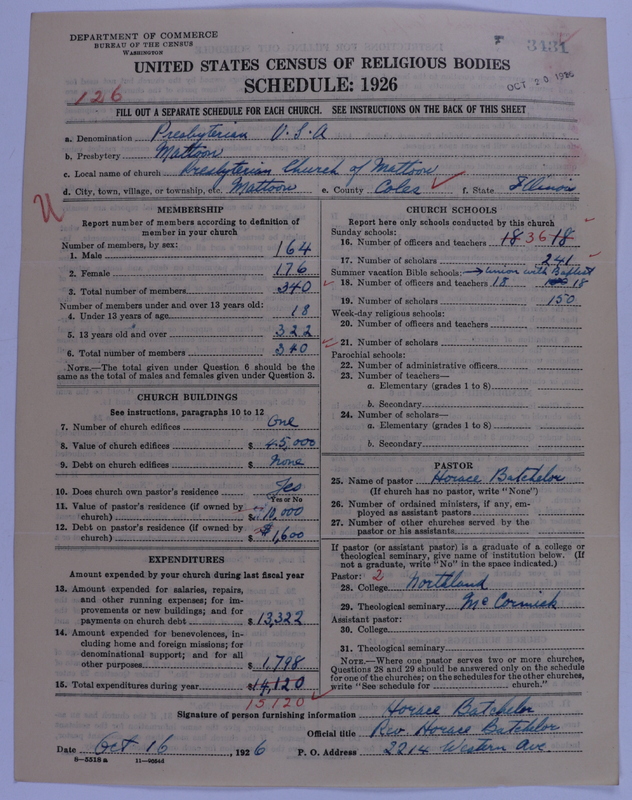 DEPARTMENT OF COMMERCE
BUREAU OF THE CENSUS
WASHINGTON
3431
OCT 20 1926
UNITED STATES CENSUS OF RELIGIOUS BODIES
SCHEDULE: 1926
126
FILL OUT A SEPARATE SCHEDULE FOR EACH CHURCH. SEE INSTRUCTIONS ON THE BACK OF THIS SHEET
a. Denomination Presbyterian U.S.A
b. Presbytery Mattoon
c. Local name of church Presbyterian Church of Mattoon
d. City, town, village, or township, etc. Mattoon e. County Coles f. State Illinois
MEMBERSHIP
Report number of members according to definition of
member in your church
Number of members, by sex:
1. Male 164
2. Female 176
3. Total number of members 340
Number of members under and over 13 years old:
4. Under 13 years of age 18
5. 13 years old and over 322
6. Total number of members 340
NOTE.—The total given under Question 6 should be
same as the total of males and females given under Question 3.
CHURCH BUILDINGS
See instructions, paragraphs 10 to 12
7. Number of church edifices One
8. Value of church edifices $ 45,000
9. Debt on church edifices $ None
10. Does church own pastor's residence Yes
Yes or No
11. Value of pastor's residence (if owned by
church) $ 10,000
12. Debt on pastor's residence (if owned by
church) $ 1,600
EXPENDITURES
Amount expended by your church during last fiscal year
13. Amount expended for salaries, repairs,
and other running expenses; for im-
provements or new buildings; and for
payments on church debt $ 13,322
14. Amount expended for benevolences, in-
cluding home and foreign missions; for
denominational support; and for all
other purposes $ 1,798
15. Total expenditures during year $ 14,120
15120
CHURCH SCHOOLS
Report here only schools conducted by this church
Sunday schools:
16. Number of officers and teachers 18 36 18
17. Number of scholars 241
Summer vacation Bible schools: → union with Baptist
18. Number of officers and teachers 18 18
19. Number of scholars 150
Week-day religious schools:
20. Number of officers and teachers
21. Number of scholars
Parochial schools:
22. Number of administrative officers
23. Number of teachers—
a. Elementary (grades 1 to 8)
b. Secondary
24. Number of scholars—
a. Elementary (grades 1 to 8)
b. Secondary
PASTOR
25. Name of pastor Horace Batchelor
(If church has no pastor, write "None")
26. Number of ordained ministers, if any, em-
ployed as assistant pastors
27. Number of other churches served by the
pastor or his assistants
If pastor (or assistant pastor) is a graduate of a college or
theological seminary, give name of institution below. (If
not a graduate, write "No" in the space indicated.)
Pastor: 2
28. College Northland
29. Theological seminary McCormick
Assistant pastor:
30. College
31. Theological seminary
NOTE.—Where one pastor serves two or more churches,
Questions 28 and 29 should be answered only on the schedule
for one of the churches; on the schedules for the other churches,
write "See schedule for church."
Signature of person furnishing information Horace Batchelor
Official title Rev. Horace Batchelor
Date Oct 16, 1926 P. O. Address 2214 Western Ave.
8—5518a 11—9064d